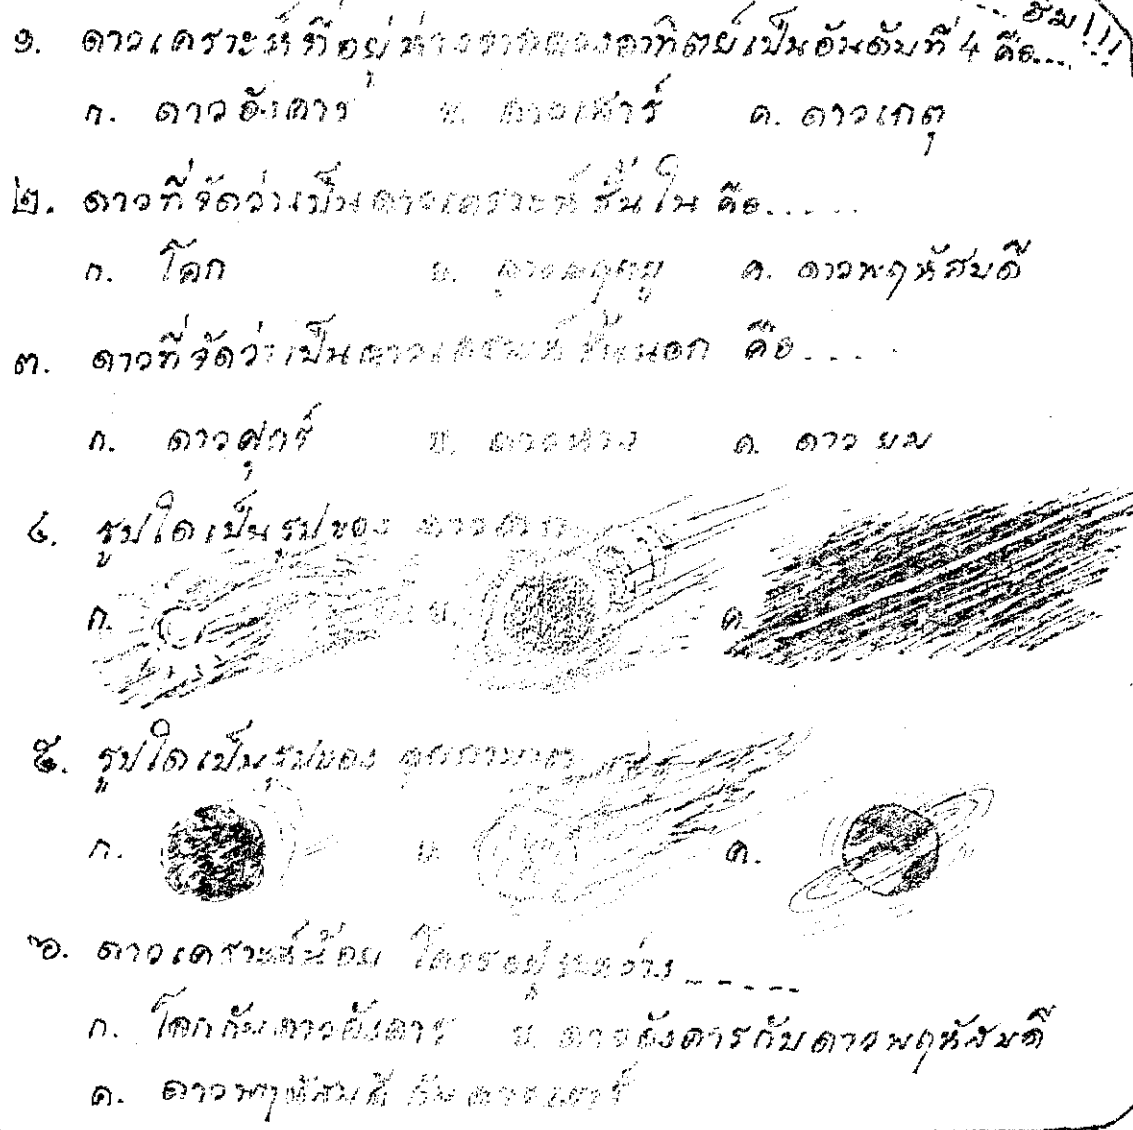 ... ฮม!!!
๑. ดาวเคราะห์ที่อยู่ห่างจากดวงอาทิตย์เป็นอันดับที่ 4 คือ....
ก. ดาวอังคาร ข. ดาวเสาร์ ค. ดาวเกตุ
๒. ดาวที่จัดว่าเป็นดาวเคราะห์ชั้นใน คือ.....
ก. โลก ข. ค. ดาวพฤหัสบดี
๓. ดาวที่จัดว่าเป็นดาวเคราะห์ชั้นนอก คือ.....
ก. ดาวศุกร์ ข. ดาวหาง ค. ดาวยม
๔. รูปใดเป็นรูปของ
ก. ข. ค.
๕. รูปใดเป็นรูปของ อุกกาบาต
ก. ข. ค.
๖. ดาวเคราะห์น้อย โคจรอยู่ระหว่าง -----
ก. โลกกับดาวอังคาร ข. ดาวอังคารกับดาวพฤหัสบดี
ค. ดาวพฤหัสบดี กับ ดาวเสาร์